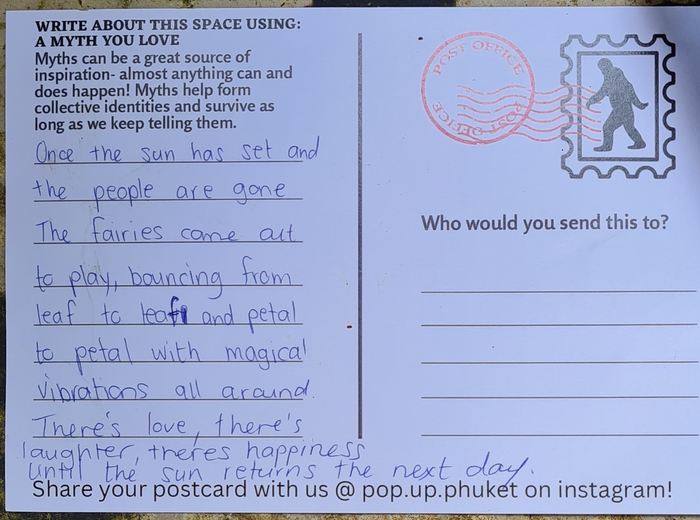 WRITE ABOUT THIS SPACE USING:
A MYTH YOU LOVE
Myths can be a great source of
inspiration- almost anything can and
does happen! Myths help form
collective identities and survive as
long as we keep telling them.
Once the sun has set and
the people are gone
The fairies come out
to play, bouncing from
leaf to leaf and petal
to petal with magical
vibrations all around.
There's love, there's
laughter, theres happiness
until the sun returns the next day.
POST OFFICE
POST OFFICE
Who would you send this to?
Share your postcard with us @ pop.up.phuket on instagram!